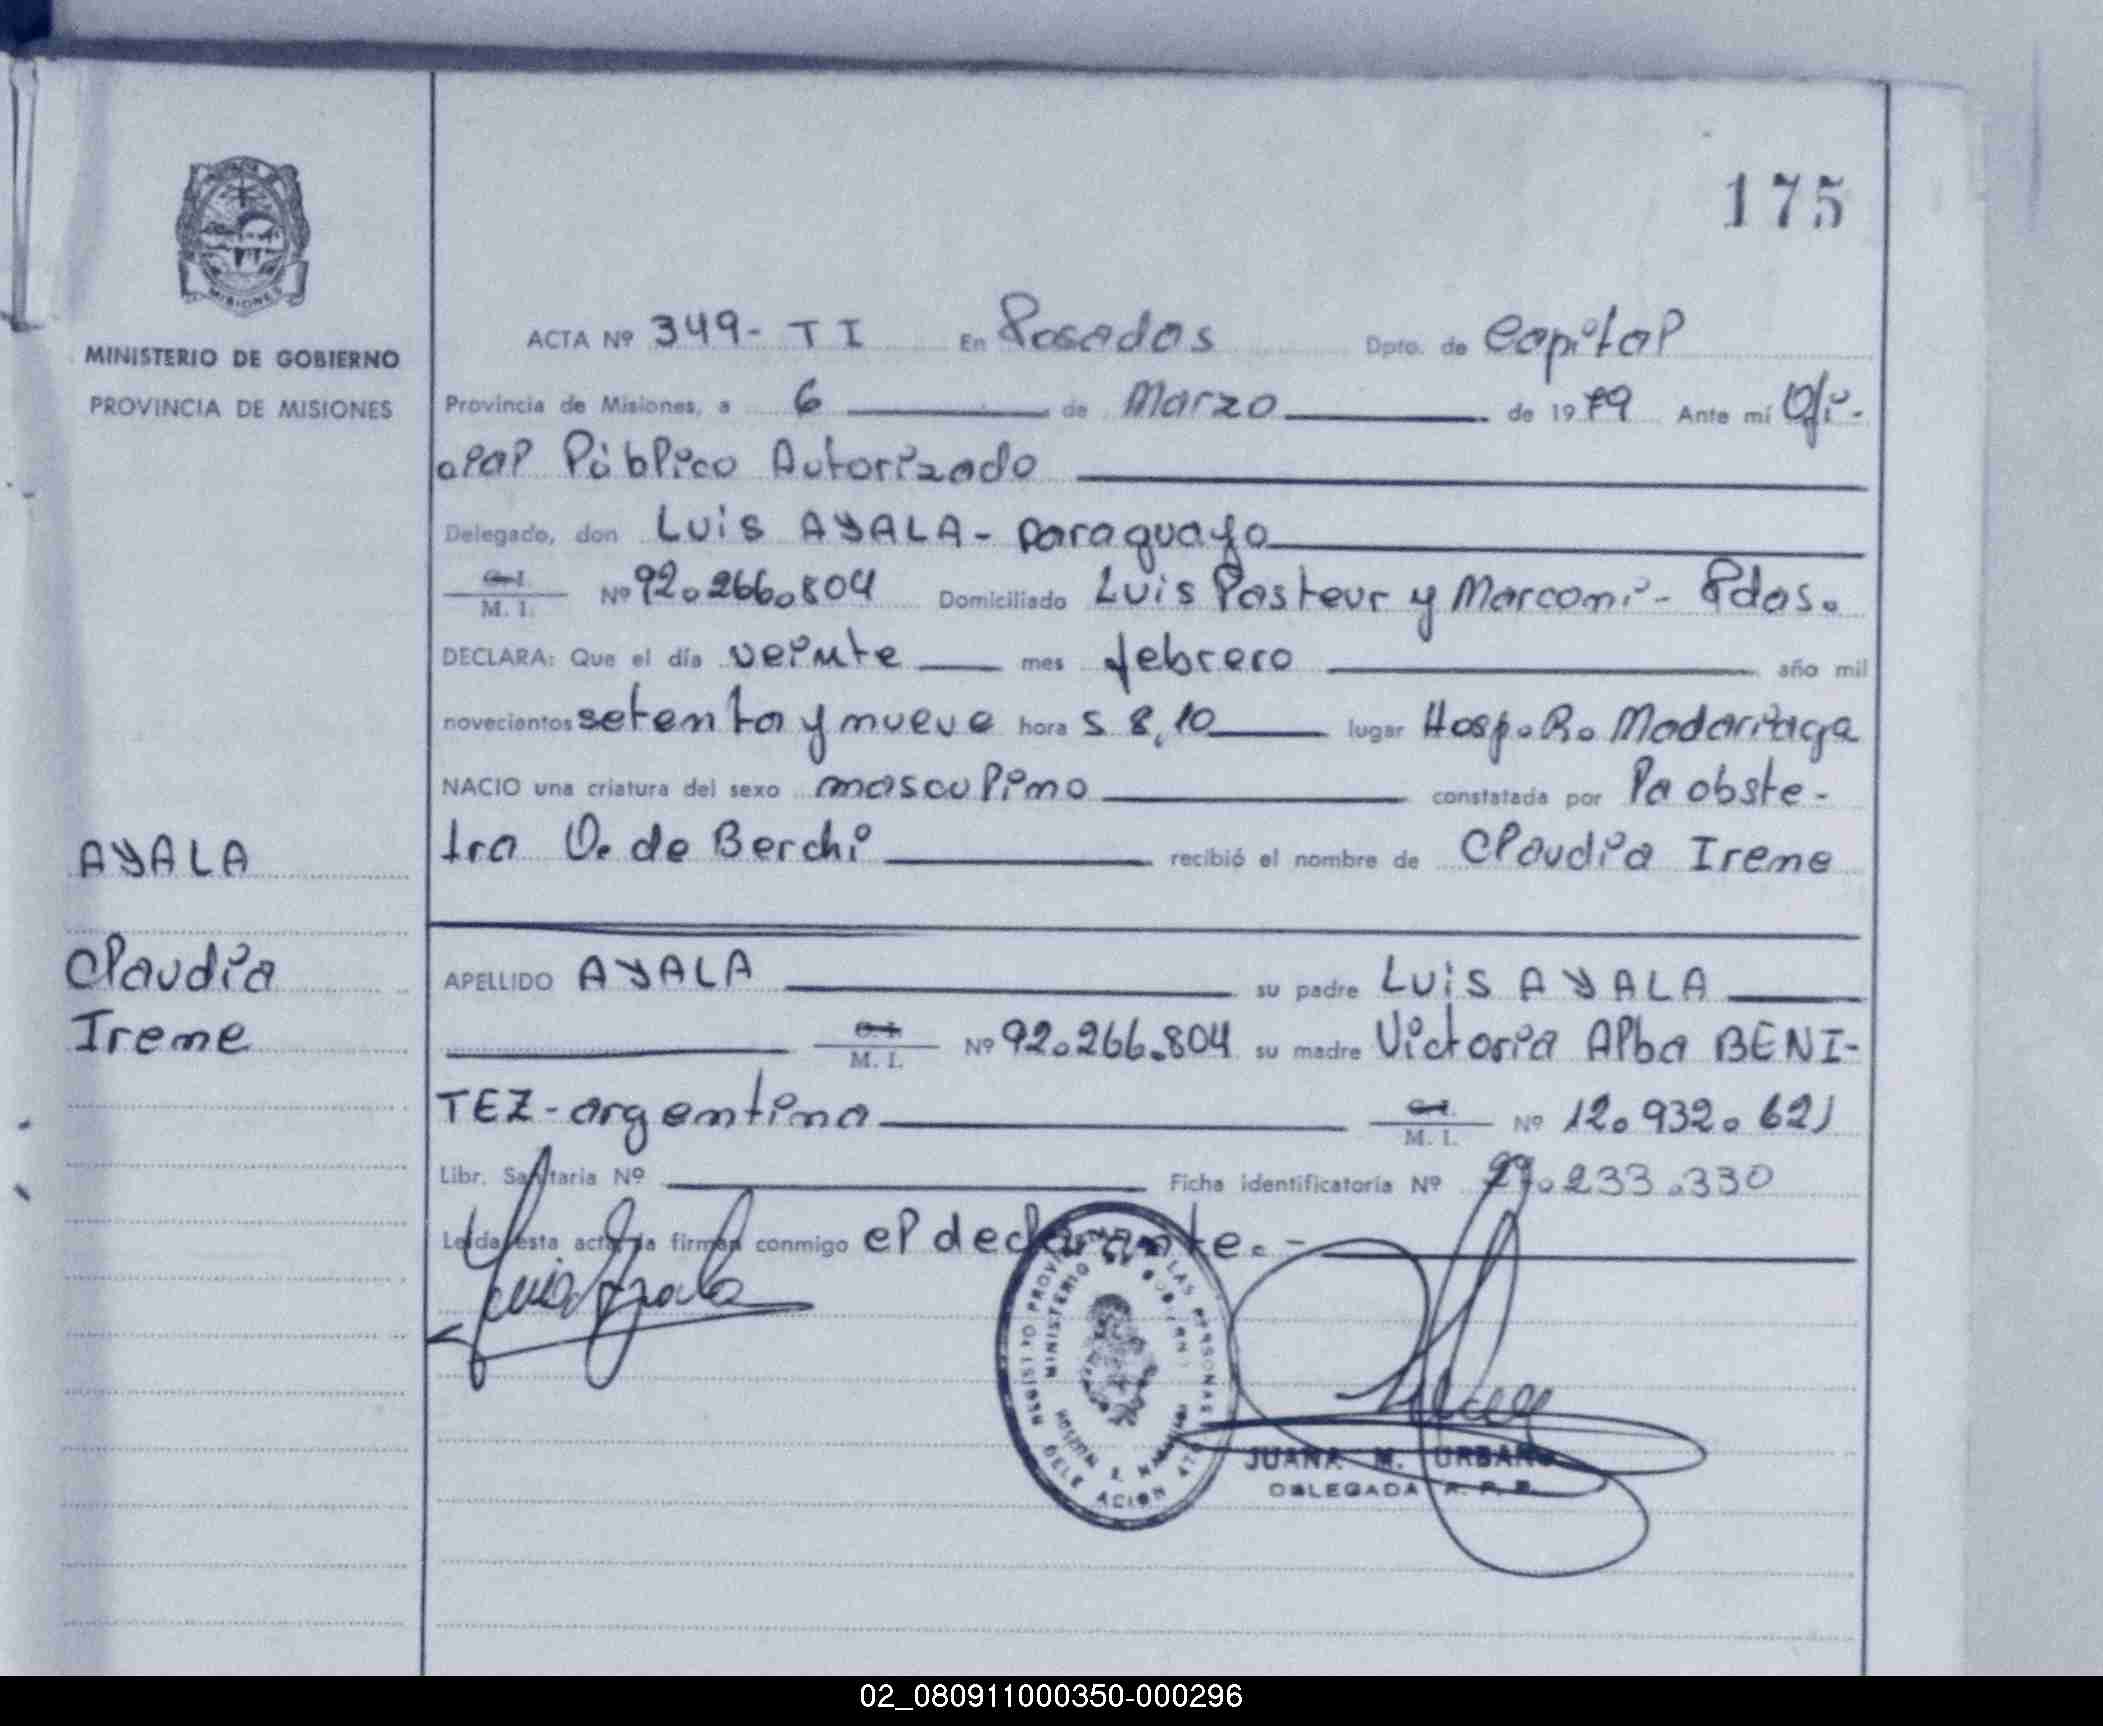 175
MISIONES
MINISTERIO DE GOBIERNO
PROVINCIA DE MISIONES
ACTA Nº 349- T I En Posadas Dpto. de Capital
Provincia de Misiones, a 6 de Marzo de 1979 Ante mí Ofi-
cial Público Autorizado
Delegado, don Luis AYALA - paraguayo
C.I. M. I. Nº 92.266.804 Domiciliado Luis Pasteur y Marconi - Pdas.
DECLARA: Que el día veinte mes febrero año mil
novecientos setenta y nueve hora s 8,10 lugar Hosp. R. Madariaga
NACIO una criatura del sexo masculino constatada por la obste-
tra O. de Berchi recibió el nombre de Claudia Irene
AYALA
Claudia
Irene
APELLIDO AYALA su padre Luis AYALA
C.I. M. I. Nº 92.266.804 su madre Victoria Alba BENI-
TEZ - argentina C.I. M. I. Nº 12.932.621
Libr. Sanitaria Nº Ficha identificatoria Nº 27.233.330
Leída esta acta la firman conmigo el declarante. -
Luis Ayala
REGISTRO PROVINCIAL DE LAS PERSONAS
MINISTERIO DE GOBIERNO
DELEGACION
JUANA M. URBANO
DELEGADA R. P. P.
02_080911000350-000296